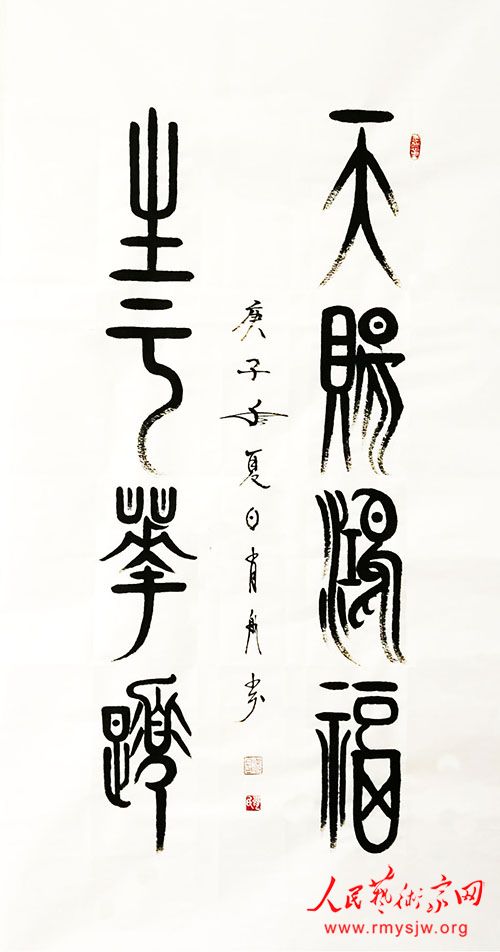 天賜鴻福
生于華
庚子年夏日肖舟书
人民藝術家网
www.rmysjw.org